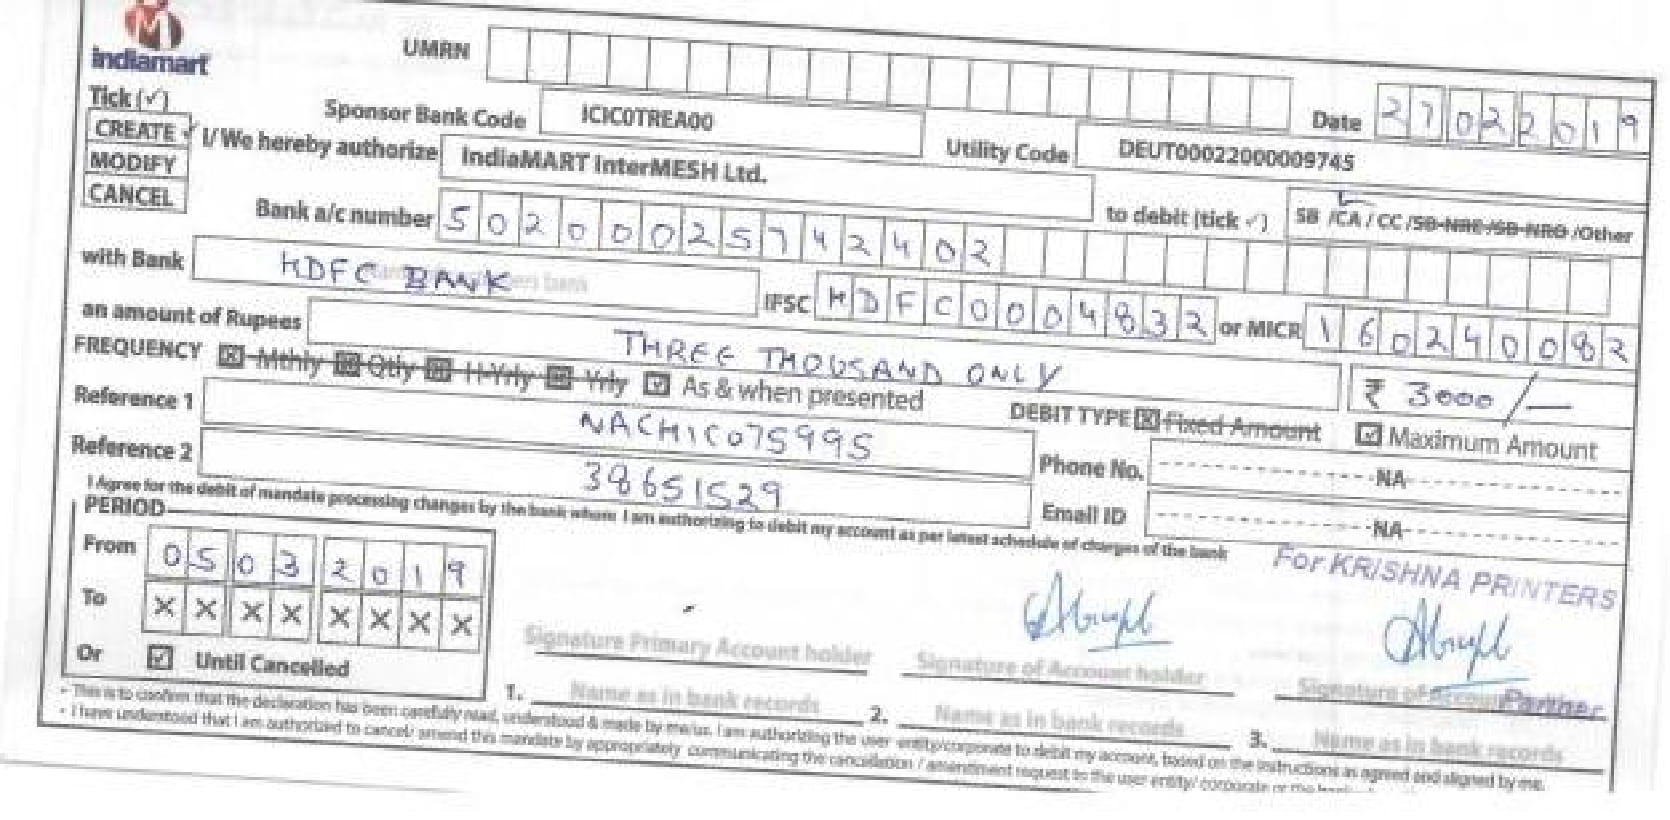 indiamart
UMRN
Date 27022019
Tick (✓)
CREATE ✓
MODIFY
CANCEL
Sponsor Bank Code ICIC0TREA00
Utility Code DEUT00022000009745
I/We hereby authorize IndiaMART InterMESH Ltd.
to debit (tick ✓) SB /CA / CC /SB-NRE /SB-NRO /Other
Bank a/c number 50200025742402
with Bank HDFC BANK
IFSC HDFC0004832 or MICR 160240082
an amount of Rupees THREE THOUSAND ONLY ₹ 3000/—
FREQUENCY Mthly Qtly H-Yrly Yrly As & when presented
DEBIT TYPE Fixed Amount Maximum Amount
Reference 1 NACHIC075995
Phone No. NA
Reference 2 38651529
Email ID NA
I Agree for the debit of mandate processing charges by the bank whom I am authorizing to debit my account as per latest schedule of charges of the bank
PERIOD
From 05032019
To XXXXXXXX
Or Until Cancelled
For KRISHNA PRINTERS
Signature Primary Account holder
Signature of Account holder
Signature of Account
Partner
1. Name as in bank records
2. Name as in bank records
3. Name as in bank records
- This is to confirm that the declaration has been carefully read, understood & made by me/us. I am authorizing the user entity/corporate to debit my account, based on the instructions as agreed and signed by me.
- I have understood that I am authorized to cancel/ amend this mandate by appropriately communicating the cancellation / amendment request to the user entity/ corporate or the